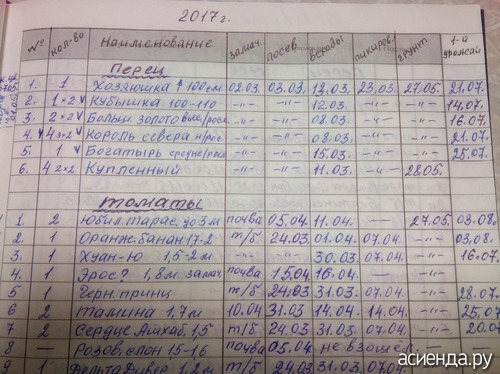 2017г.
№ кол-во Наименование замач. посев. всходы пикиров. грунт 1-й урожай
Перец
1. 1 Хозяюшка 100см 02.03. 03.03. 12.03. 23.03. 27.05. 21.07.
2. 1×2 Кубышка 100-110 -"- -"- 12.03. -"- -"- 14.07.
3. 2×2 Больш. золото -"- -"- 08.03. -"- -"- 16.07.
4. 4 Король севера н/рос -"- -"- 08.03. -"- -"- 21.07.
5. 1 Богатырь средне/рос -"- -"- 15.03. -"- -"- 25.07.
6. 4 2×2 Купленный -"- -"- 11.03. -"- 28.05.
Томаты
1. 2 Юбил. Тарас. до 3м почва 05.04. 11.04. — 27.05 03.08.
2. 1 Оранж. банан 1,7-2 т/б 24.03. 01.04. 07.04. -"- 03.08.
3. 1 Хуан-ю 1,5-2м -"- -"- 30.03. 07.04. -"- 16.07.
4. 1 Эрос? 1,8м. замач. почва 15.04 16.04. — -"-
5 1 Черн. принц т/б 24.03 31.03. 07.04. -"- 28.07.
6 2 Талина 1,7м 10.04. 31.03 14.04. 14.04. -"- 25.07
7 2 Сердце Ашхаб. 1,5 т/б 24.03 31.03. 07.04. -"- 20.0
8 — Розов. слон 15-1,6 почва 05.04 не взошёл.
9 1 1,2м т/б 24.03 31.03. 07.04.
асиенда.ру